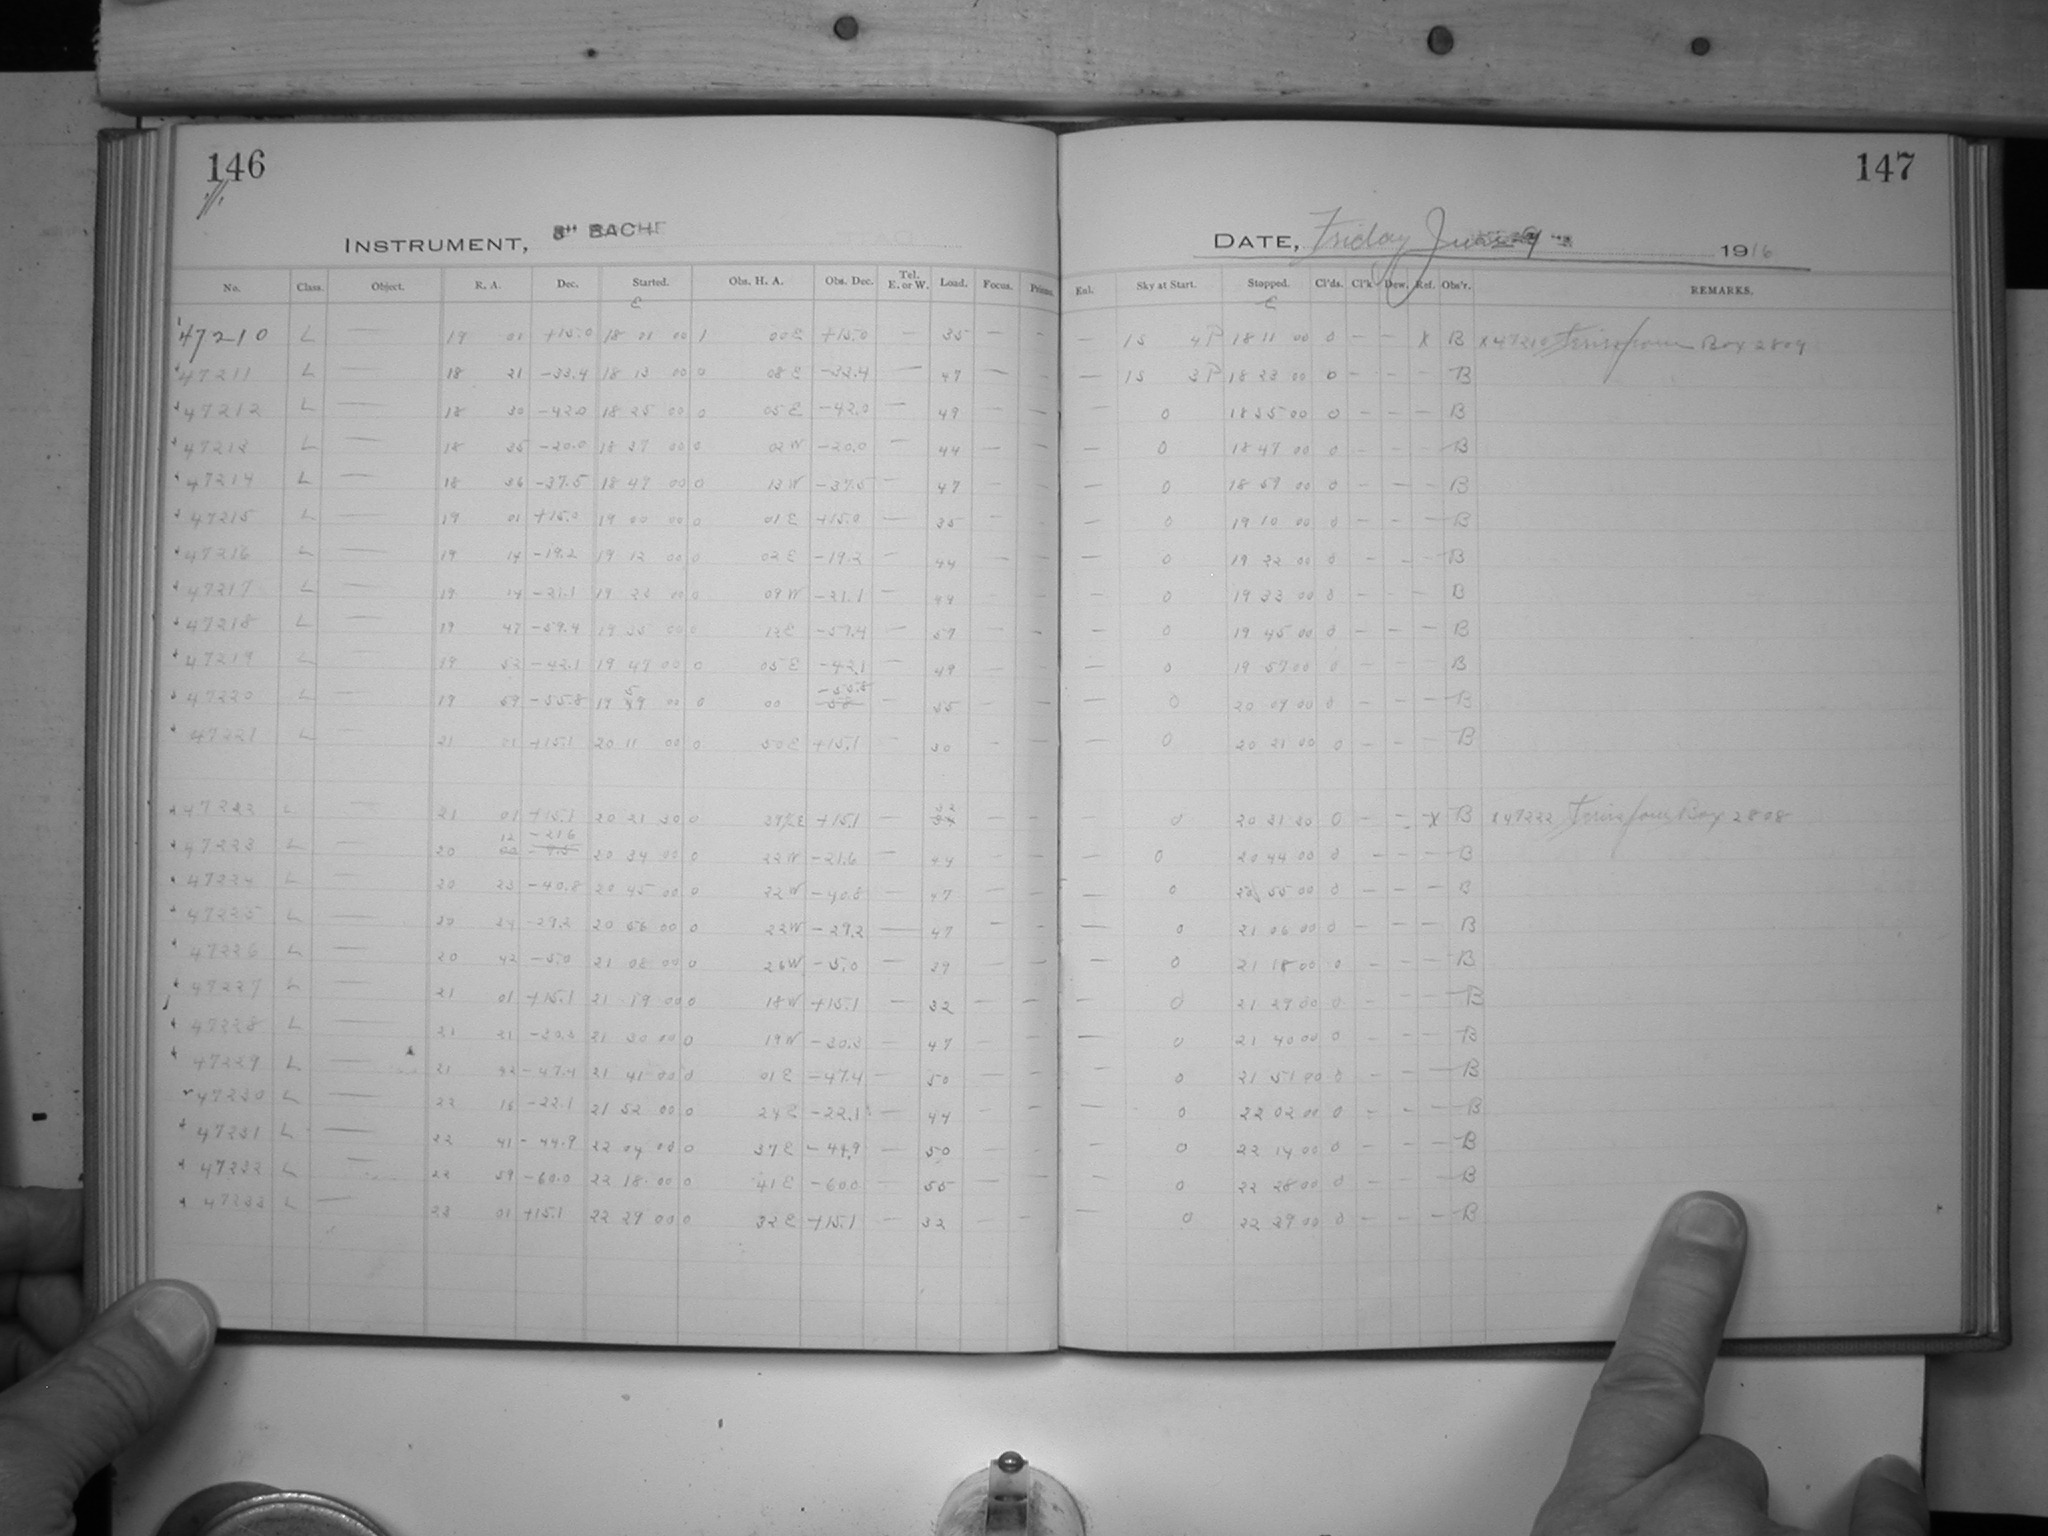 146
147
INSTRUMENT, 8" BACHE
DATE, Friday June 9 1916
No. Class. Object. R. A. Dec. Started. Obs. H. A. Obs. Dec. Tel. E. or W. Load. Focus. Prisms. Exl. Sky at Start. Stopped. Cl'ds. Cl'k Dew. Ref. Obs'r. REMARKS.
47210 L — 19 01 +15.0 18 01 00 1 00 E +15.0 — 35 — — — 15 4P 18 11 00 0 — — X B X 47210 Box 2809
47211 L — 18 21 -33.4 18 13 00 0 08 E -33.4 — 47 — — — 15 3P 18 23 00 0 — — — B
47212 L — 18 30 -42.0 18 25 00 0 05 E -42.0 — 49 — — — 0 18 35 00 0 — — — B
47213 L — 18 35 -20.0 18 37 00 0 02 W -20.0 — 44 — — — 0 18 47 00 0 — — — B
47214 L — 18 36 -37.5 18 49 00 0 13 W -37.5 — 47 — — — 0 18 59 00 0 — — — B
47215 L — 19 01 +15.0 19 00 00 0 01 E +15.0 — 35 — — — 0 19 10 00 0 — — — B
47216 L — 19 14 -19.2 19 12 00 0 02 E -19.2 — 44 — — — 0 19 22 00 0 — — — B
47217 L — 19 14 -21.1 19 23 00 0 09 W -21.1 — 44 — — — 0 19 33 00 0 — — — B
47218 L — 19 47 -59.4 19 35 00 0 12 E -59.4 — 57 — — — 0 19 45 00 0 — — — B
47219 L — 19 52 -42.1 19 47 00 0 05 E -42.1 — 49 — — — 0 19 57 00 0 — — — B
47220 L — 19 59 -55.8 19 59 00 0 00 -55.8 — 55 — — — 0 20 09 00 0 — — — B
47221 L — 21 01 +15.1 20 11 00 0 50 E +15.1 30 — — — 0 20 21 00 0 — — — B
L — 21 01 +15.1 20 21 30 0 +15.1 — 32 — — — 0 20 31 30 0 — — X B X 47222 Box 2808
47223 L — 20 12 -21.6 20 34 00 0 22 W -21.6 — 44 — — — 0 20 44 00 0 — — — B
47224 L — 20 23 -40.8 20 45 00 0 22 W -40.8 — 47 — — — 0 20 55 00 0 — — — B
47225 L — 20 34 -29.2 20 56 00 0 22 W -29.2 — 47 — — — 0 21 06 00 0 — — — B
47226 L — 20 42 -5.0 21 08 00 0 26 W -5.0 — 39 — — — 0 21 18 00 0 — — — B
47227 L — 21 01 +15.1 21 19 00 0 18 W +15.1 — 32 — — — 0 21 29 00 0 — — — B
47228 L — 21 21 -30.3 21 30 00 0 19 W -30.3 47 — — — 0 21 40 00 0 — — — B
47229 L — 21 42 -47.4 21 41 00 0 01 E -47.4 — 50 — — — 0 21 51 00 0 — — — B
47230 L — 22 16 -22.1 21 52 00 0 24 E -22.1 — 44 — — — 0 22 02 00 0 — — — B
47231 L — 22 41 -44.9 22 04 00 0 37 E -44.9 — 50 — — — 0 22 14 00 0 — — — B
47232 L — 22 59 -60.0 22 18 00 0 41 E -60.0 — 55 — — — 0 22 28 00 0 — — — B
47233 L — 23 01 +15.1 22 29 00 0 32 E +15.1 — 32 — — — 0 22 29 00 0 — — — B